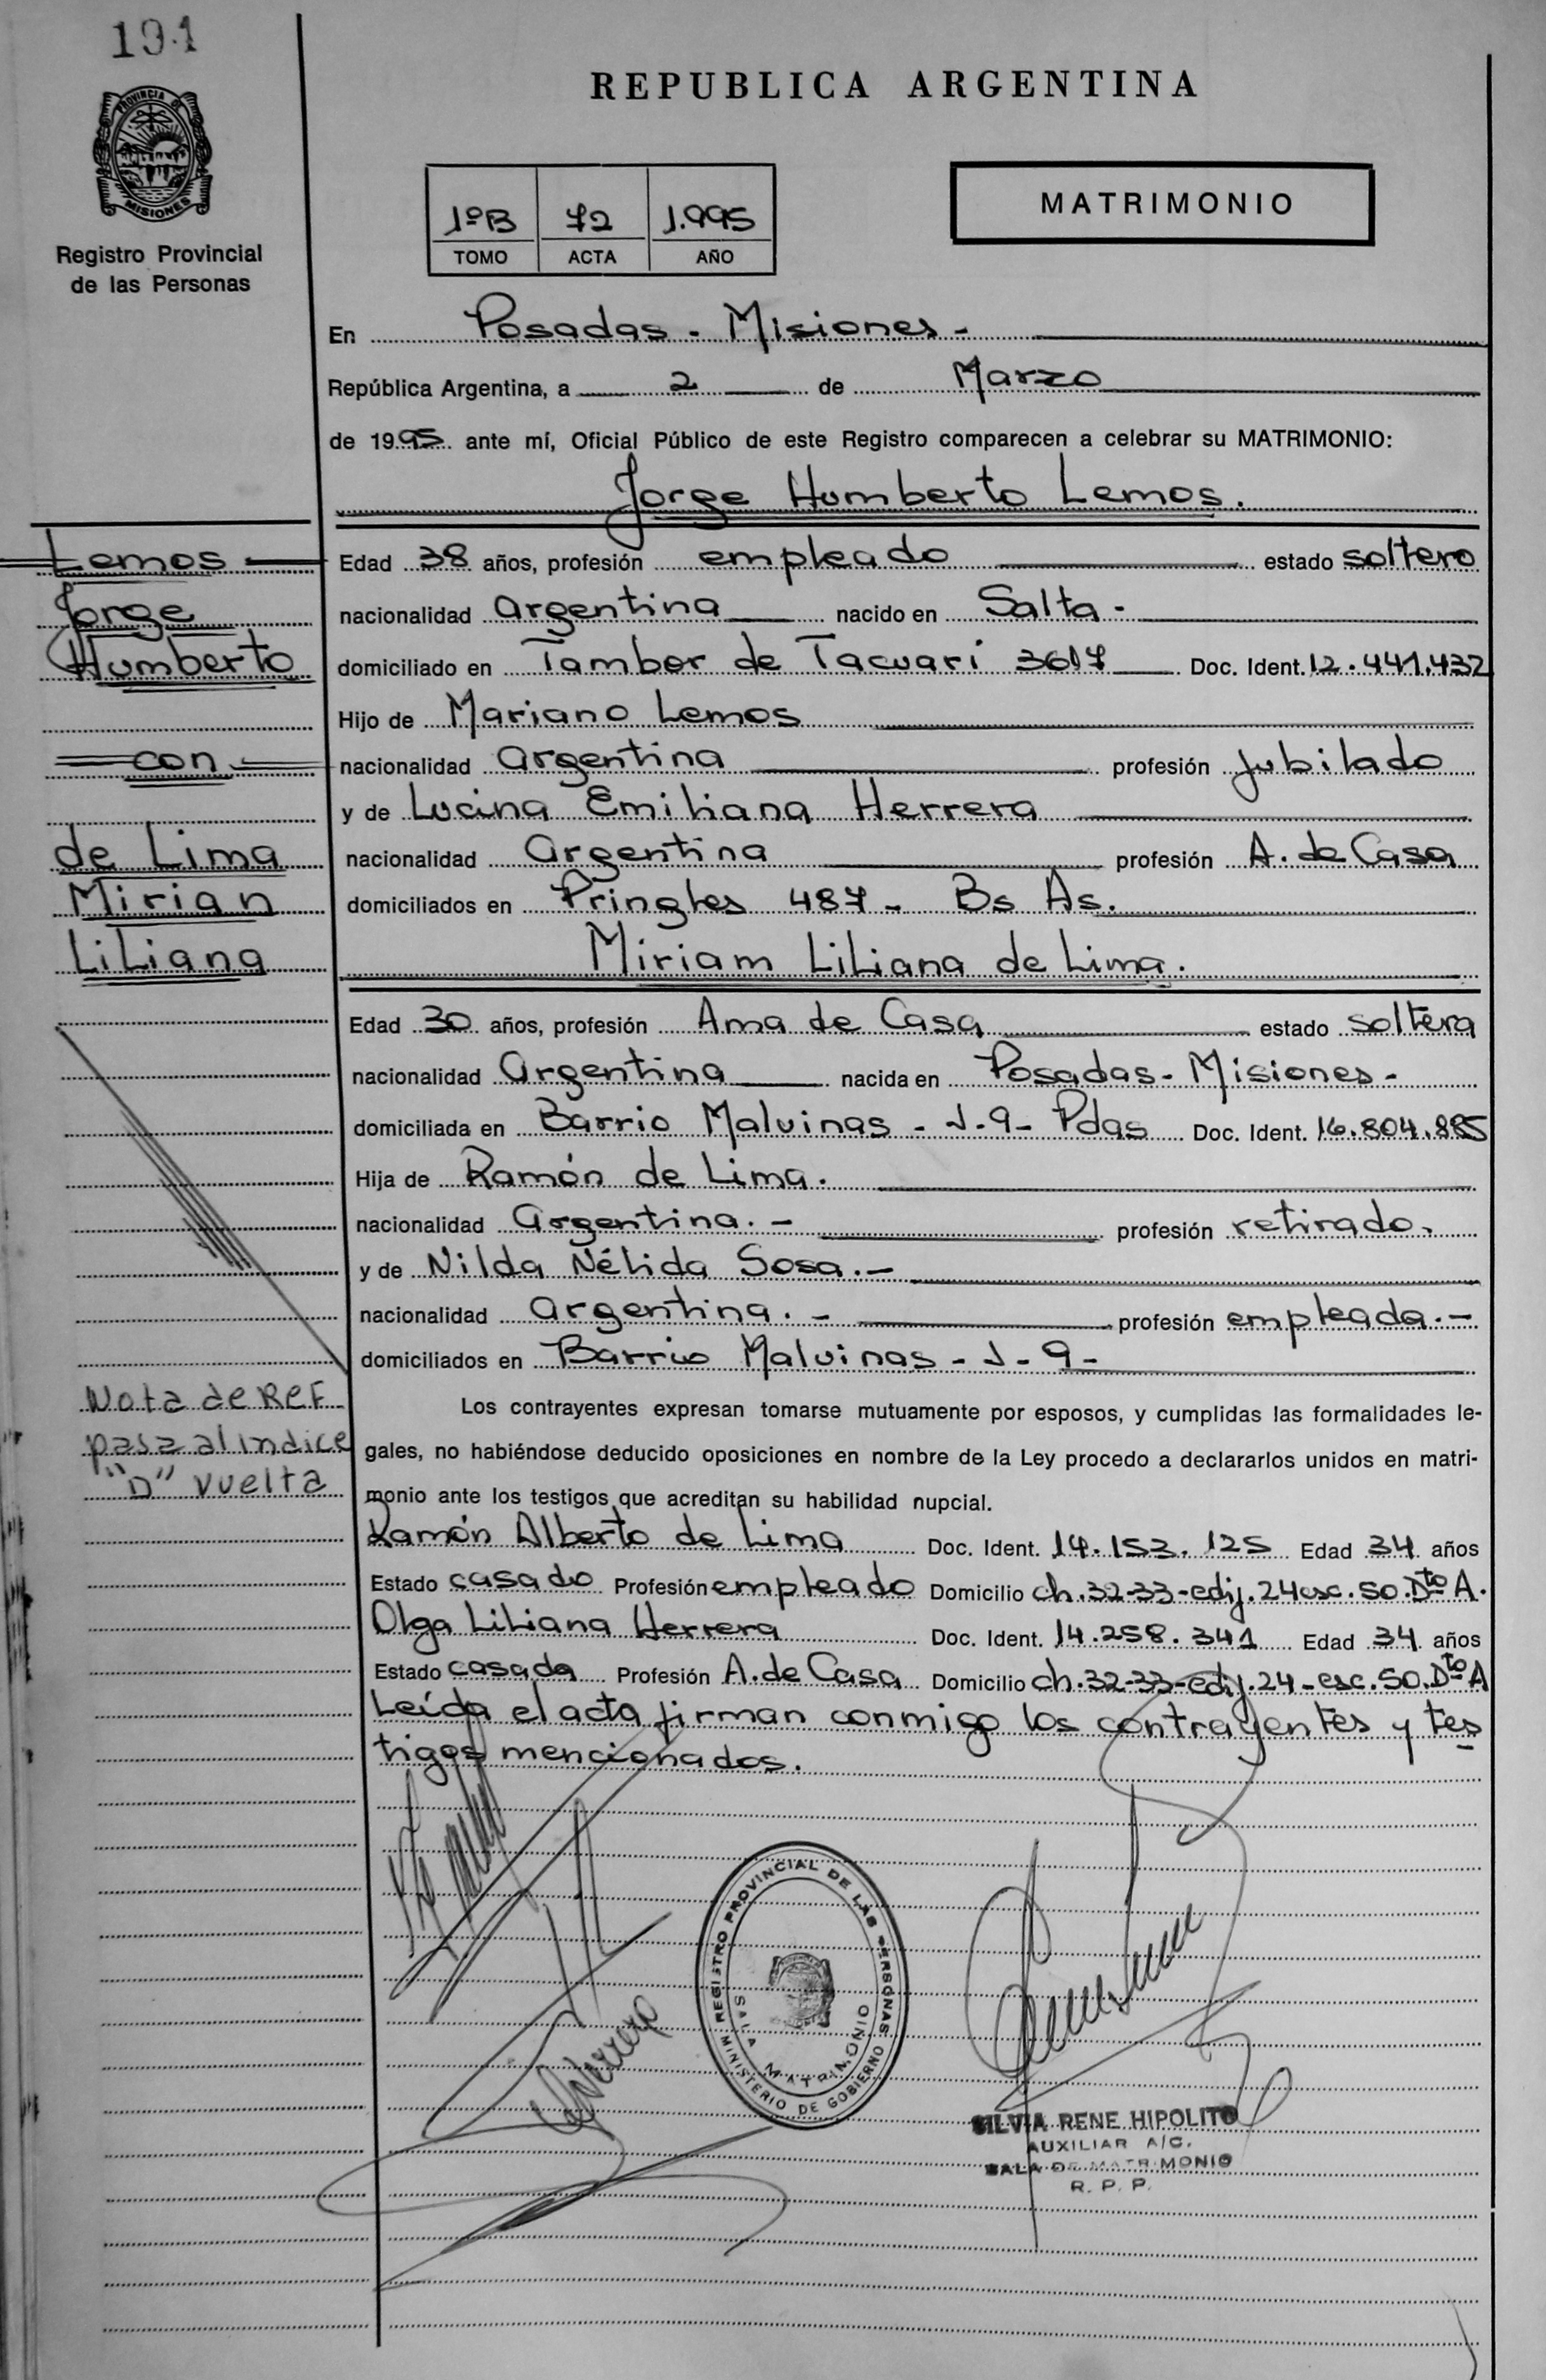 194
REPUBLICA ARGENTINA
PROVINCIA DE
MISIONES
Registro Provincial
de las Personas
1ºB 72 1.995
TOMO ACTA AÑO
MATRIMONIO
En Posadas - Misiones -
República Argentina, a 2 de Marzo
de 1995 ante mí, Oficial Público de este Registro comparecen a celebrar su MATRIMONIO:
Jorge Humberto Lemos.
Lemos
Jorge
Humberto
con
de Lima
Mirian
Liliana
Edad 38 años, profesión empleado estado soltero
nacionalidad argentina nacido en Salta -
domiciliado en Tambor de Tacuarí 3617 Doc. Ident. 12.441.432
Hijo de Mariano Lemos
nacionalidad argentina profesión jubilado
y de Lucina Emiliana Herrera
nacionalidad argentina profesión A. de Casa
domiciliados en Pringles 487 - Bs As.
Miriam Liliana de Lima.
Edad 30 años, profesión Ama de Casa estado soltera
nacionalidad argentina nacida en Posadas - Misiones -
domiciliada en Barrio Malvinas - J-9- Pdas Doc. Ident. 16.804.885
Hija de Ramón de Lima.
nacionalidad argentina. - profesión retirado.
y de Nilda Nélida Sosa. -
nacionalidad argentina. - profesión empleada. -
domiciliados en Barrio Malvinas - J - 9 -
Nota de Ref
pasa al indice
"D" vuelta
Los contrayentes expresan tomarse mutuamente por esposos, y cumplidas las formalidades le-
gales, no habiéndose deducido oposiciones en nombre de la Ley procedo a declararlos unidos en matri-
monio ante los testigos que acreditan su habilidad nupcial.
Ramón Alberto de Lima Doc. Ident. 14.153.125 Edad 34 años
Estado casado Profesión empleado Domicilio ch.32-33-edif.24 esc.50.Dto A.
Olga Liliana Herrera Doc. Ident. 14.258.341 Edad 34 años
Estado casada Profesión A. de Casa Domicilio ch.32-33-edif.24-esc.50.Dto A
Leída el acta firman conmigo los contrayentes y tes
tigos mencionados.
REGISTRO PROVINCIAL DE LAS PERSONAS
MINISTERIO DE GOBIERNO
SALA MATRIMONIO
Herrera
SILVIA RENE HIPOLITO
AUXILIAR A/C.
SALA DE MATRIMONIO
R. P. P.